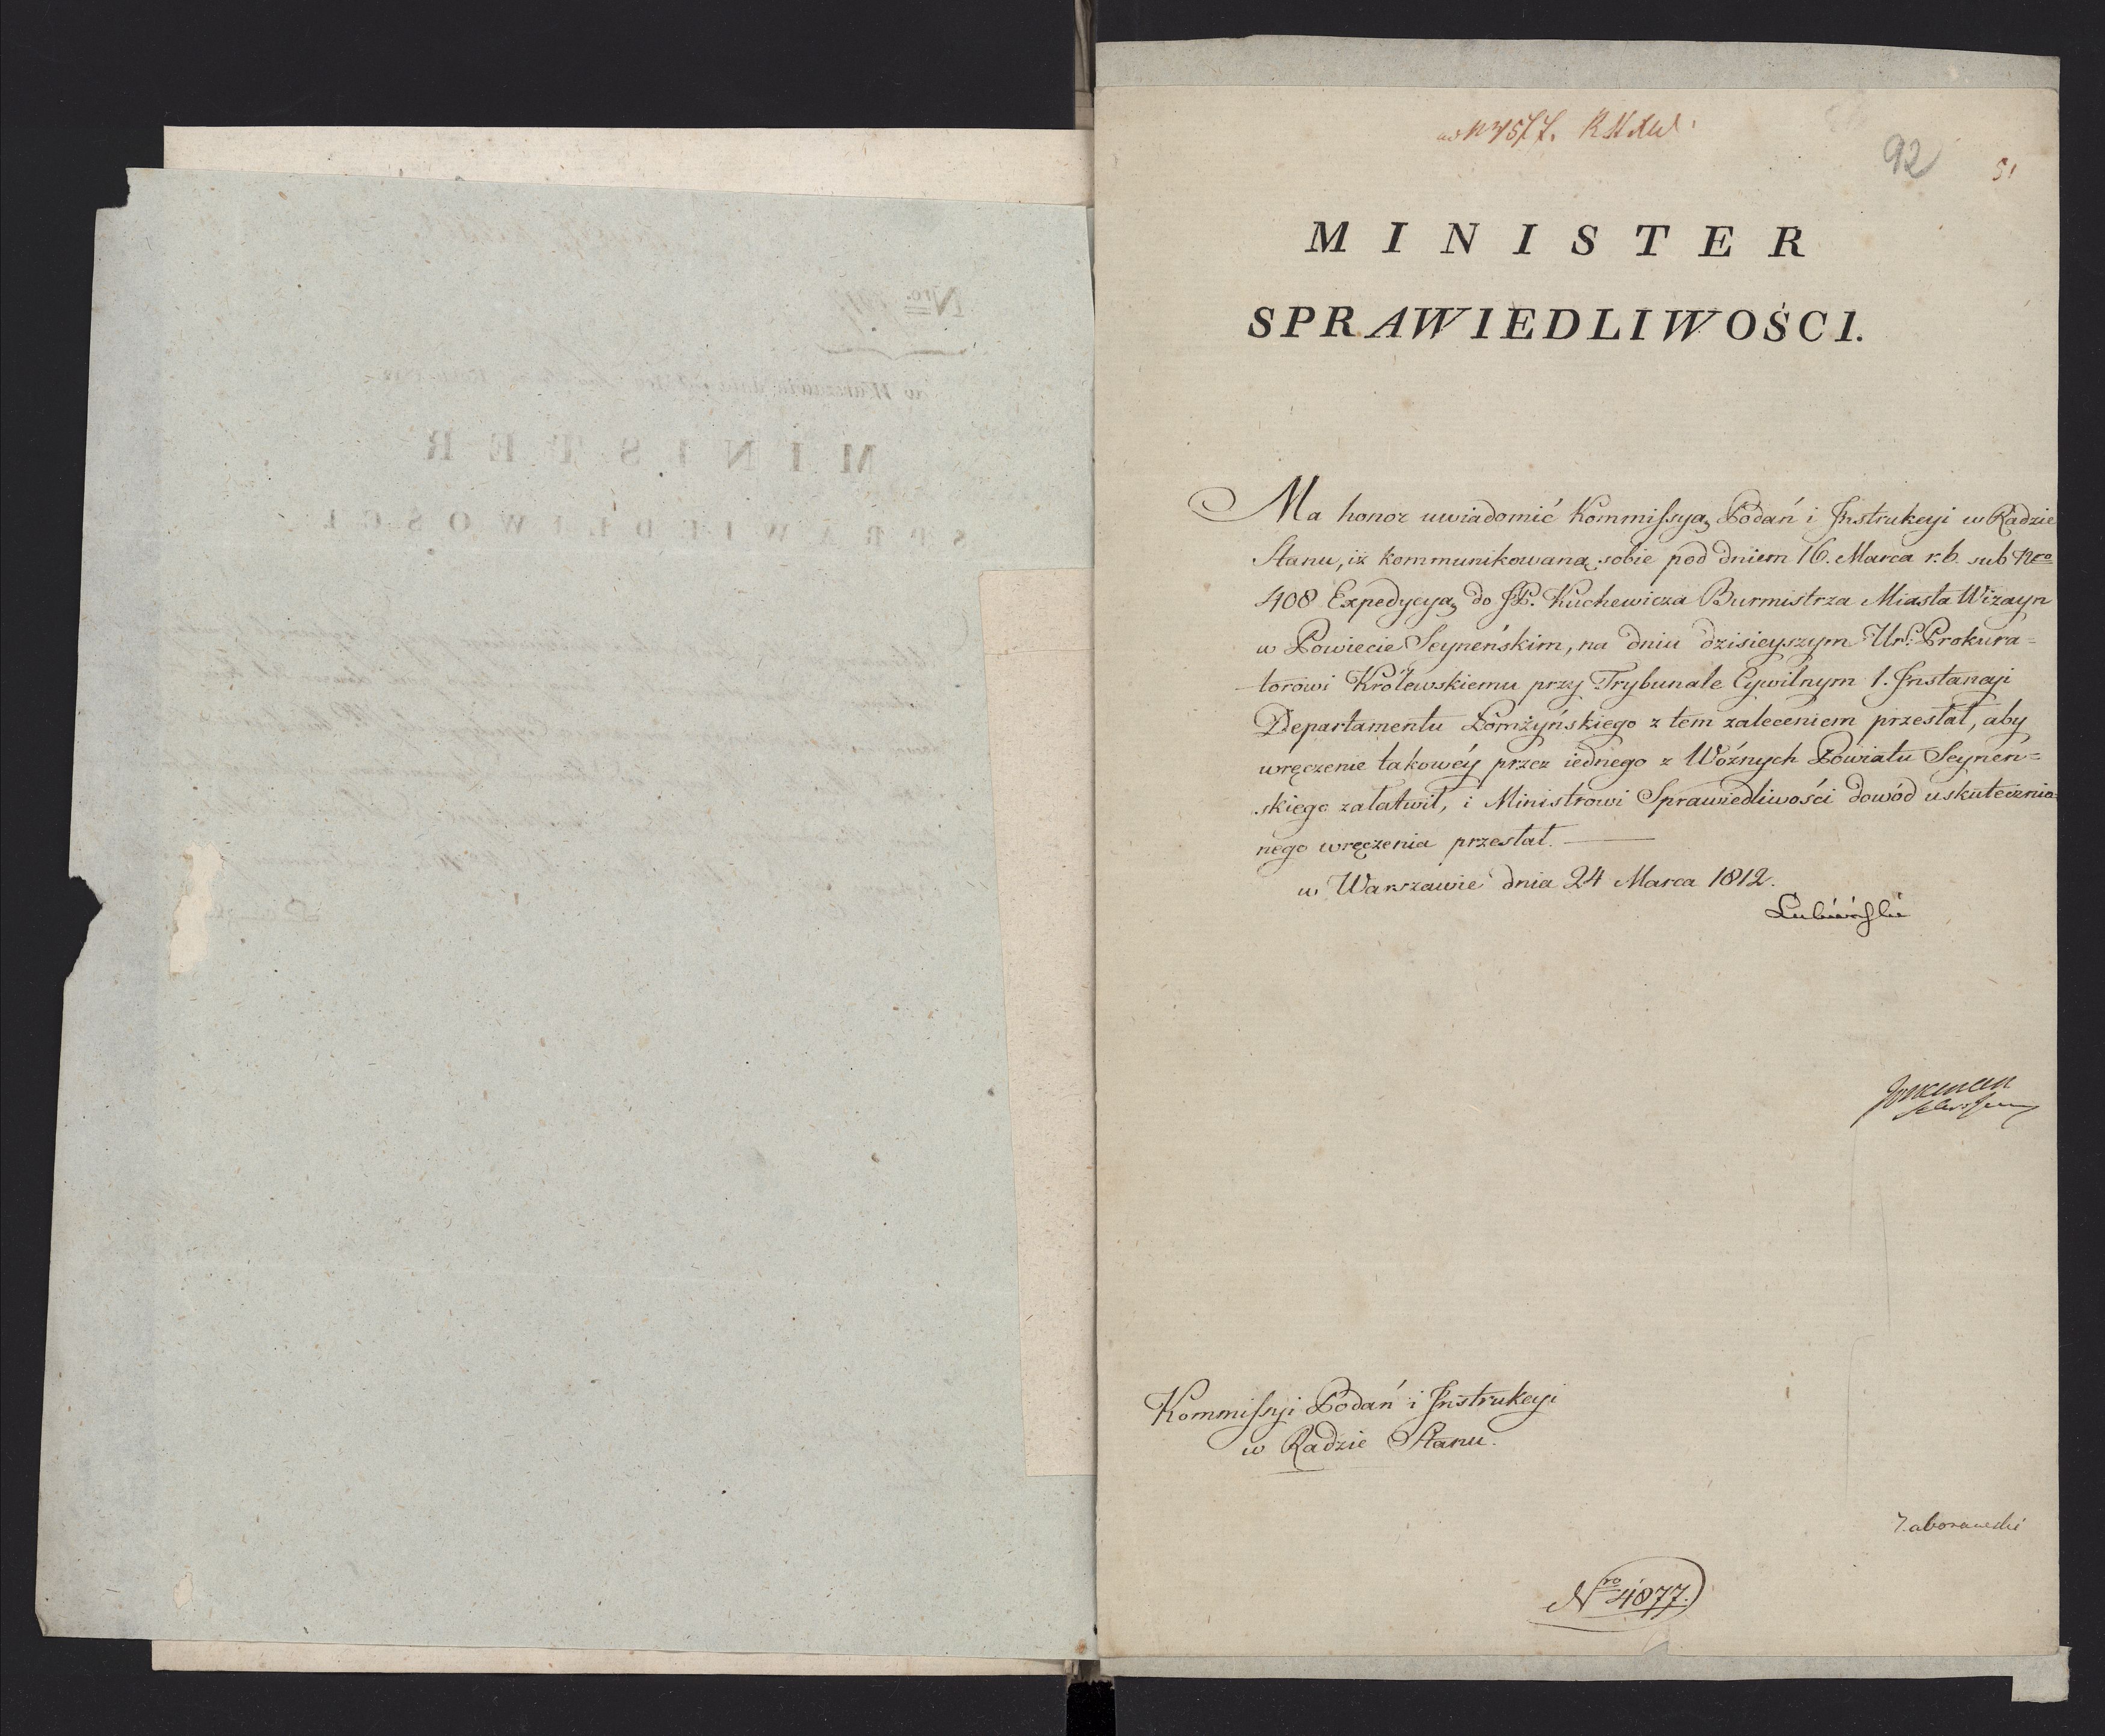 92
51
MINISTER
SPRAWIEDLIWOŚCI.
Ma honor uwiadomić Kommissyą Podań i Instrukcyi w Radzie
Stanu, iż kommunikowaną sobie pod dniem 16. Marca r.b. sub Nro
408 Expedycyą do JP. Kuchewicza Burmistrza Miasta Wizayn
w Powiecie Seyneńskim, na dniu dzisieyszym Ur. Prokura=
torowi Królewskiemu przy Trybunale Cywilnym 1. Instancyi
Departamentu Łomżyńskiego z tem zaleceniem przesłał, aby
wręczenie takowéy przez iednego z Woźnych Powiatu Seyneń=
skiego załatwił, i Ministrowi Sprawiedliwości dowód uskutecznio=
nego wręczenia przesłał.
w Warszawie dnia 24 Marca 1812.
Lubieński
Kommissyi Podań i Instrukcyi
w Radzie Stanu.
Zaborowski
Nro 4877.